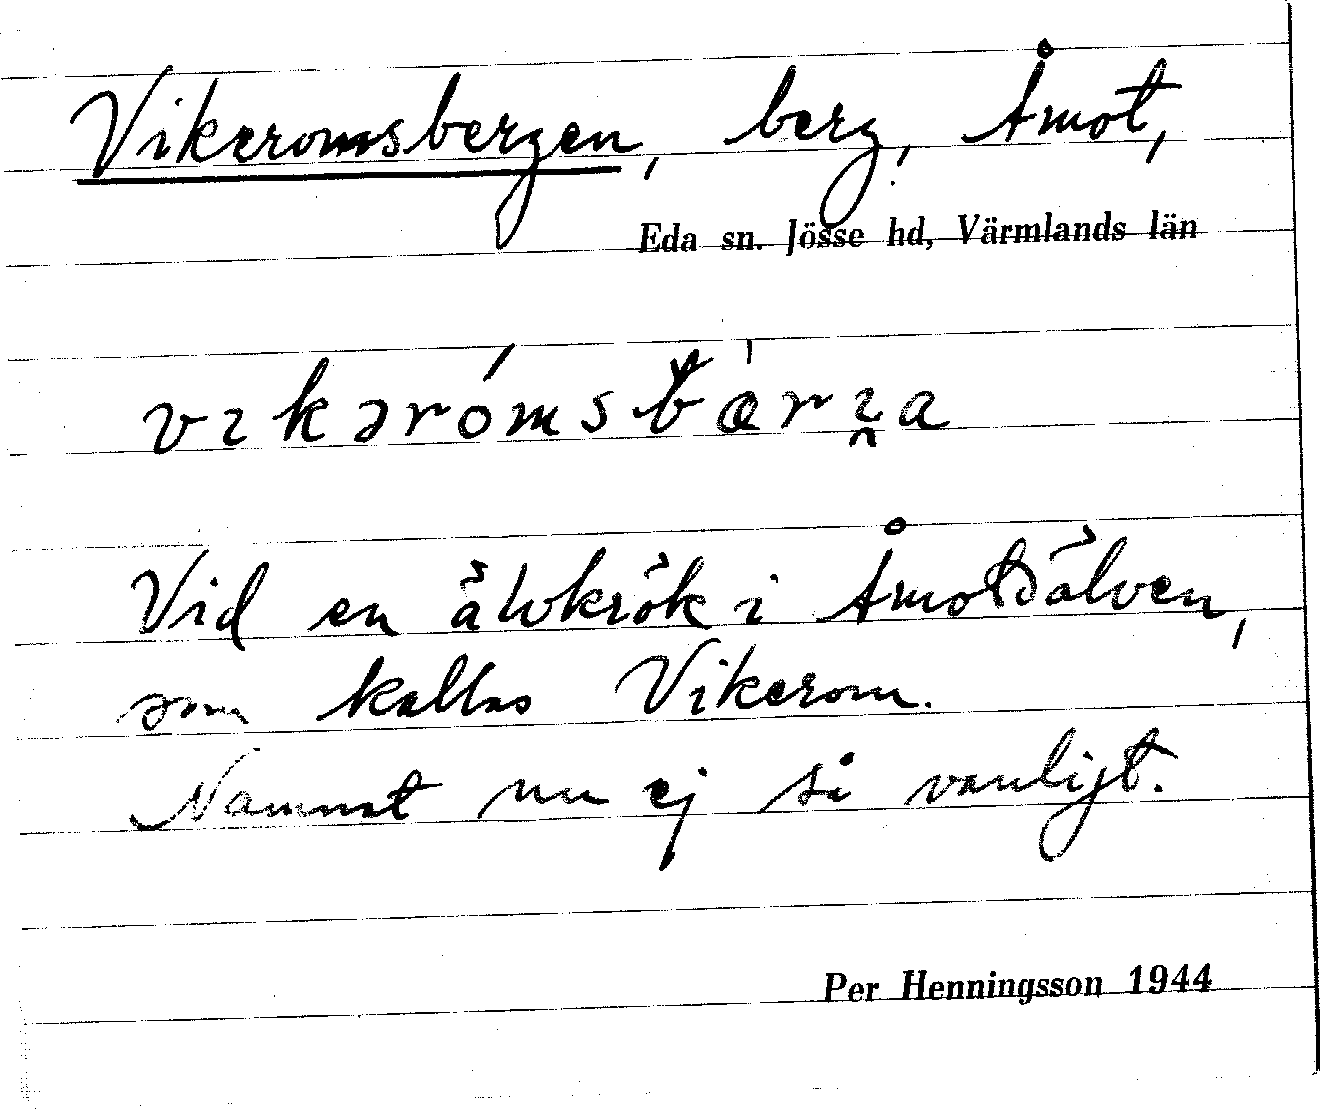 Vikeromsbergen, berg, Åmot,
Eda sn. Jösse hd, Värmlands län
vıkərómsbær̀ı̯a
Vid en älvkrök i Åmotsälven,
som kallas Vikerom.
Namnet nu ej så vanligt.
Per Henningsson 1944